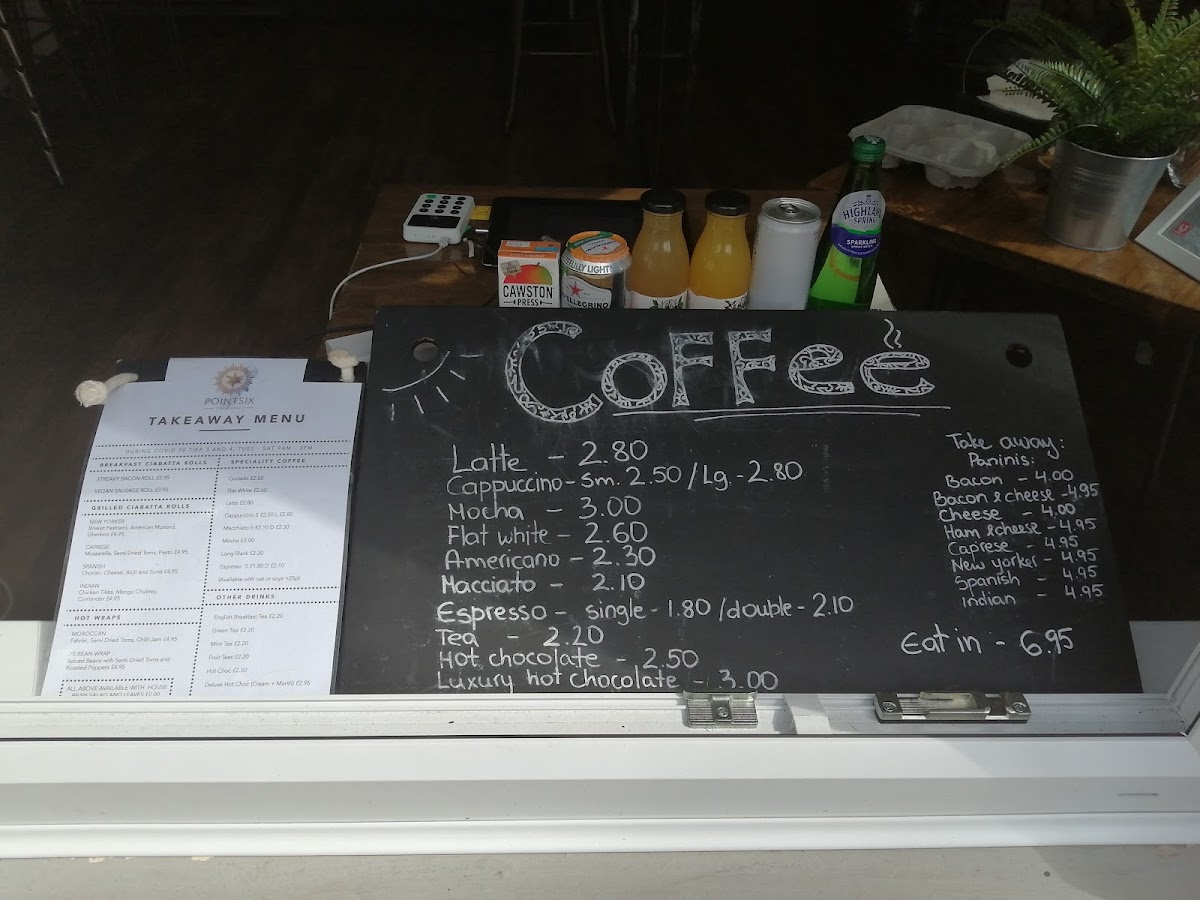 HIGHLAND
SPRING
SPARKLING
CAWSTON
PRESS
LIGHT
PELLEGRINO
POINTSIX
TAKEAWAY MENU
DURING COVID 19 TIER 3 AND 4, TUES - SAT 9AM - 2PM
BREAKFAST CIABATTA ROLLS
STREAKY BACON ROLL £3.95
VEGAN SAUSAGE ROLL £3.95
GRILLED CIABATTA ROLLS
NEW YORKER
Brisket Pastrami, American Mustard,
Gherkins £4.95
CAPRESE
Mozzarella, Semi Dried Toms, Pesto £4.95
SPANISH
Chorizo, Cheese, Aioli and Toms £4.95
INDIAN
Chicken Tikka, Mango Chutney,
Coriander £4.95
HOT WRAPS
MOROCCAN
Falafel, Semi Dried Toms, Chilli Jam £4.95
BEAN WRAP
Spiced Beans with Semi Dried Toms and
Roasted Peppers £4.95
ALL ABOVE AVAILABLE WITH HOUSE
BEAN SALAD AND LEAVES £2.00
SPECIALITY COFFEE
Cortado £2.50
Flat White £2.60
Latte £2.80
Cappuccino S £2.50 L £2.80
Macchiato S £2.10 D £2.30
Mocha £3.00
Long Black £2.30
Espresso S £1.80 D £2.10
(Available with oat or soya +25p)
OTHER DRINKS
English Breakfast Tea £2.20
Green Tea £2.20
Mint Tea £2.20
Fruit Teas £2.20
Hot Choc £2.50
Deluxe Hot Choc (Cream + Marsh) £2.95
Coffee
Latte - 2.80
Cappuccino - Sm. 2.50 / Lg. - 2.80
Mocha - 3.00
Flat white - 2.60
Americano - 2.30
Macciato - 2.10
Espresso - single - 1.80 / double - 2.10
Tea - 2.20
Hot chocolate - 2.50
Luxury hot chocolate - 3.00
Take away:
Paninis:
Bacon - 4.00
Bacon & cheese - 4.95
Cheese - 4.00
Ham & cheese - 4.95
Caprese - 4.95
New yorker - 4.95
Spanish - 4.95
indian - 4.95
Eat in - 6.95